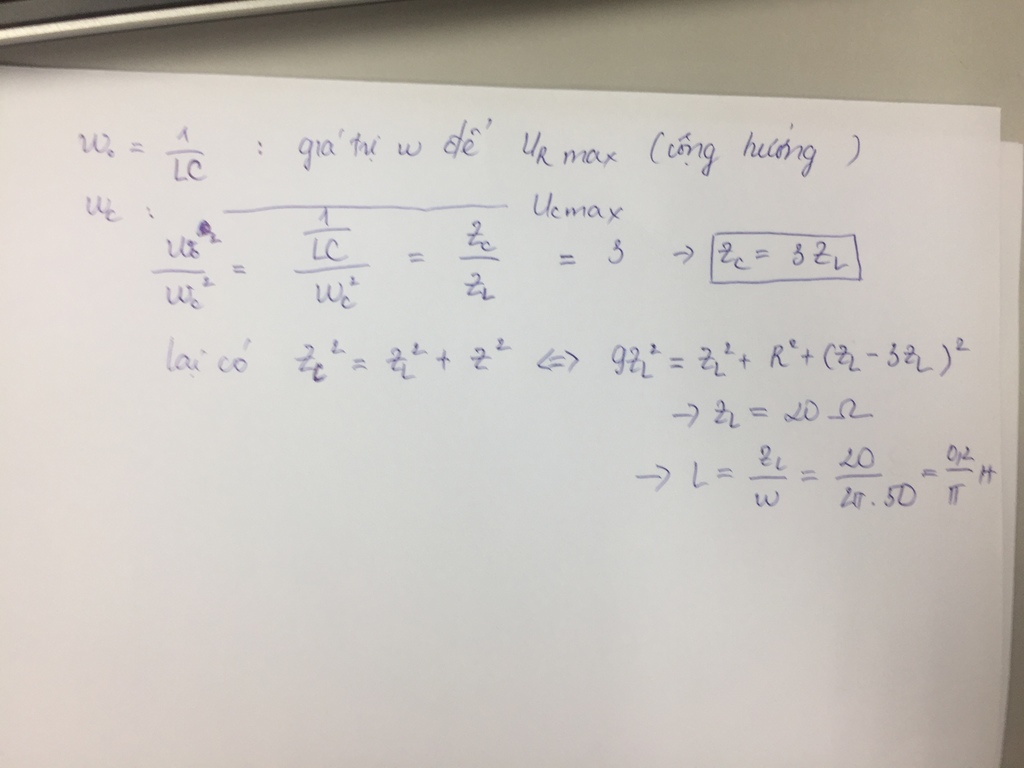 ω₀ = 1/LC : giá trị ω để U_R max (cộng hưởng)
ω_c : ———————— U_cmax
ω₀²/ω_c² = (1/LC)/ω_c² = Z_c/Z_L = 3 → Z_c = 3Z_L
lại có Z_c² = Z_L² + Z² ⇔ 9Z_L² = Z_L² + R² + (Z_L - 3Z_L)²
→ Z_L = 20 Ω
→ L = Z_L/ω = 20/2π.50 = 0,2/π H